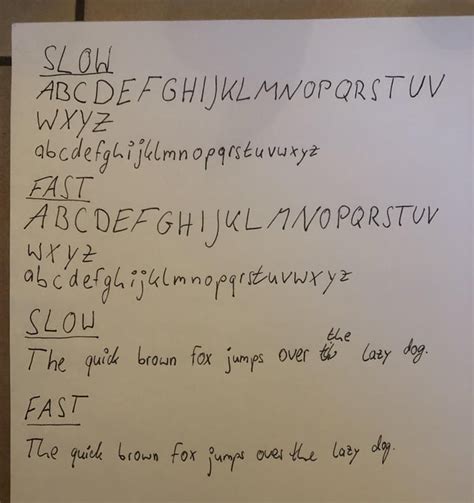 SLOW
ABCDEFGHIJKLMNOPQRSTUV
WXYZ
abcdefghijklmnopqrstuvwxyz
FAST
ABCDEFGHIJKLMNOPQRSTUV
WXYZ
abcdefghijklmnopqrstuvwxyz
SLOW
the
The quick brown fox jumps over lazy dog.
FAST
The quick brown fox jumps over the lazy dog.